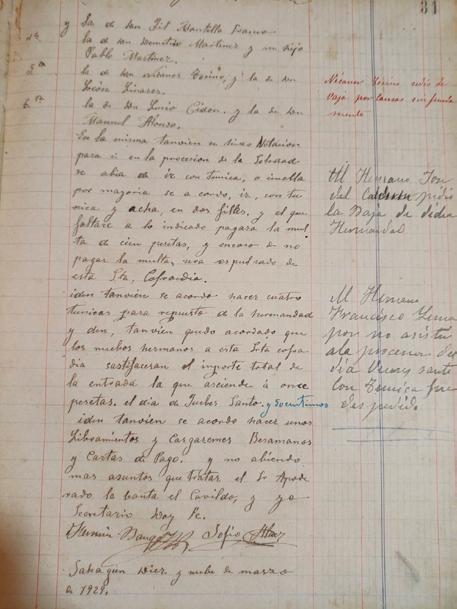 31
y la de don Gil Mantilla Franco
4ª la de don Demetrio Martinez y un hijo
Pablo Martinez.
5ª la de don Nicanor Terino, y la de don
Linares.
6ª la de don Lucio Cidon, y la de don
Manuel Alonso.
En la misma tanvien se
para si en la procesion de la Soledad
se abia de ir con tunica, o
por mayoria se a cordo, ir, con tu
nica y acha, en dos filas, y el que
faltare a lo indicado pagara la mul
ta de cien pesetas, y encaso de no
pagar la multa, sera espulsado de
esta Sta, Cofradia.
iden tanvien se acordo hacer cuatro
tunicas para repuesto de la hermandad
y den, tanvien quedo acordado que
los nuebos hermanos a esta Sta cofra
dia sastifaceran el importe total de
la entrada la que asciende a once
pesetas. el dia de Juebes Santo.
iden tanvien se acordo hacer unos
Libramientos y Cargaremos Besamanos
y Cartas de Pago. y no abiendo
mas asuntos que tratar el Sr Apode
rado lebanta el Cavildo, y yo
Secretario Doy Fe.
Sahagun Diez y nuebe de marzo
de 1929.
Nicanor
baja por causas
mente
Al Hermano
del pidio
la Baja de dicha
Hermandad
Al Hermano
Francisco
por no asistir
ala procesion del
dia Viernes santo
Con Tunica fue